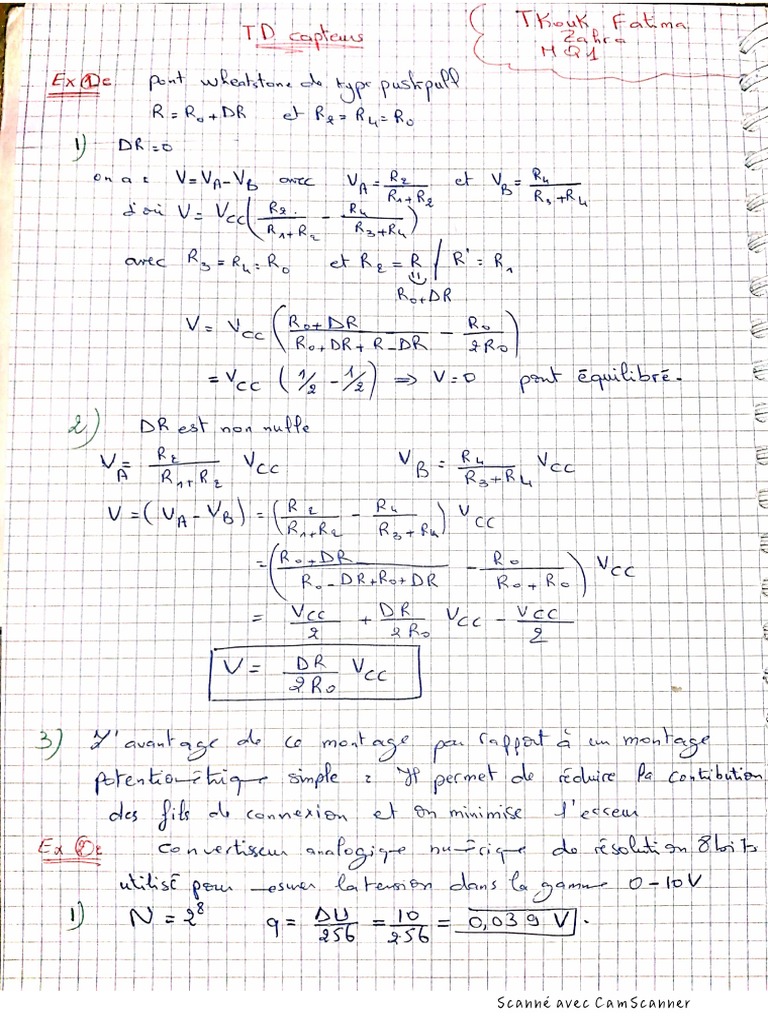 TD capteurs
TKouk Fatima
Zahra
MQ1
Ex ①: pont wheatstone de type push pull
R = R₀ + DR et R₂ = R₄ = R₀
1) DR = 0
on a : V = V_A - V_B avec V_A = R₂/(R₁+R₂) et V_B = R₄/(R₃+R₄)
d'où V = V_CC (R₂/(R₁+R₂) - R₄/(R₃+R₄))
avec R₃ = R₄ = R₀ et R₂ = R / R' = R₁
R₀+DR
V = V_CC ((R₀+DR)/(R₀+DR+R-DR) - R₀/2R₀)
= V_CC (1/2 - 1/2) ⇒ V = 0 pont équilibré.
2) DR est non nulle
V_A = R₂/(R₁+R₂) V_CC V_B = R₄/(R₃+R₄) V_CC
V = (V_A - V_B) = (R₂/(R₁+R₂) - R₄/(R₃+R₄)) V_CC
= ((R₀+DR)/(R₀-DR+R₀+DR) - R₀/(R₀+R₀)) V_CC
= V_CC/2 + DR/2R₀ V_CC - V_CC/2
V = DR/2R₀ V_CC
3) L'avantage de ce montage par rapport à un montage
potentiométrique simple : Il permet de réduire la contribution
des fils de connexion et on minimise l'erreur
Ex ②: Convertisseur analogique numérique de résolution 8 bits
utilisé pour mesurer la tension dans la gamme 0-10V
1) N = 2⁸ q = ΔU/256 = 10/256 = 0,039 V.
Scanné avec CamScanner